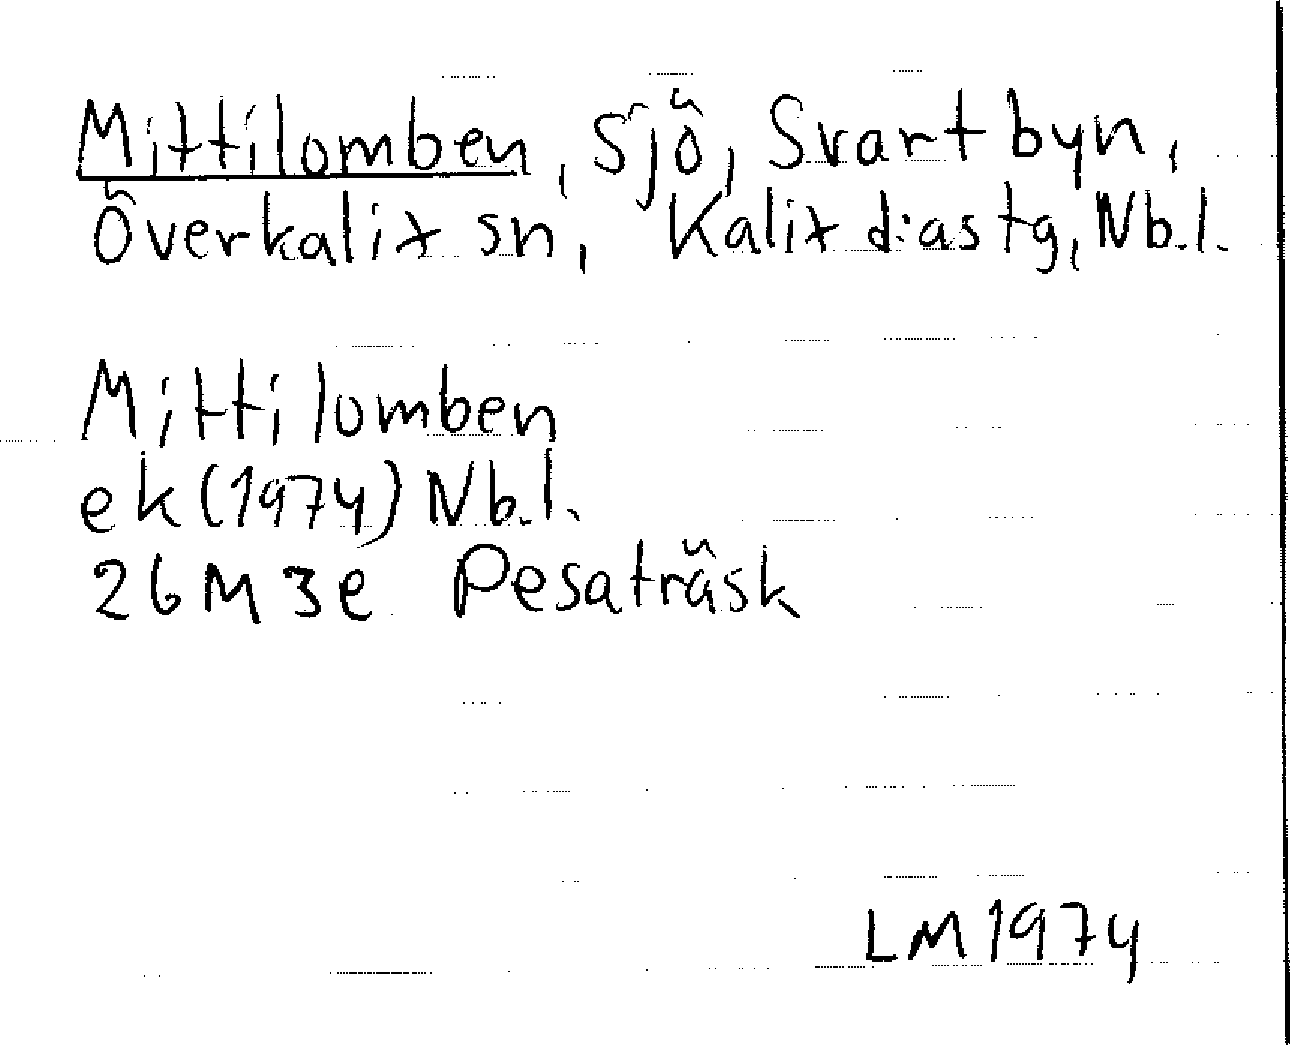 Mittilomben, sjö, Svartbyn,
Överkalix sn, Kalix d:astg, Nb.l.
Mittilomben
ek (1974) Nb.l.
26M3e Pesaträsk
LM 1974